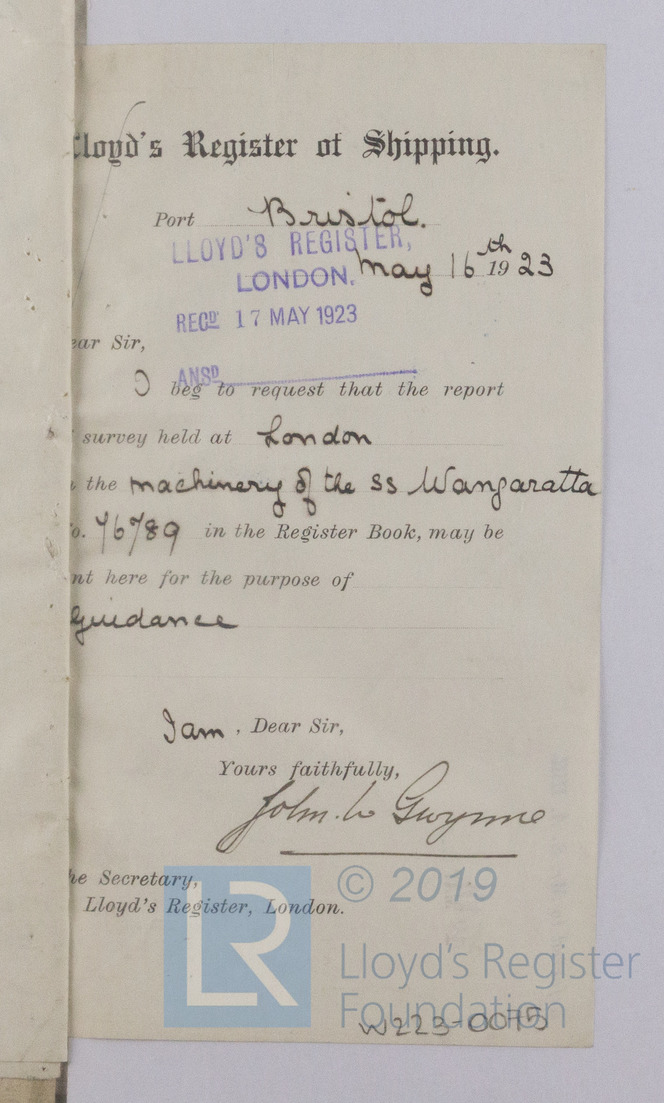 Lloyd's Register of Shipping.
Port Bristol.
LLOYD'S REGISTER,
LONDON.
May 16th 1923
RECD 17 MAY 1923
ear Sir,
ANSD
I beg to request that the report
survey held at London
the machinery of the SS Wangaratta
o. 76789 in the Register Book, may be
nt here for the purpose of
Guidance
I am, Dear Sir,
Yours faithfully,
John. W Gwynne
he Secretary,
Lloyd's Register, London.
LR
© 2019
Lloyd's Register
Foundation
W223-0075